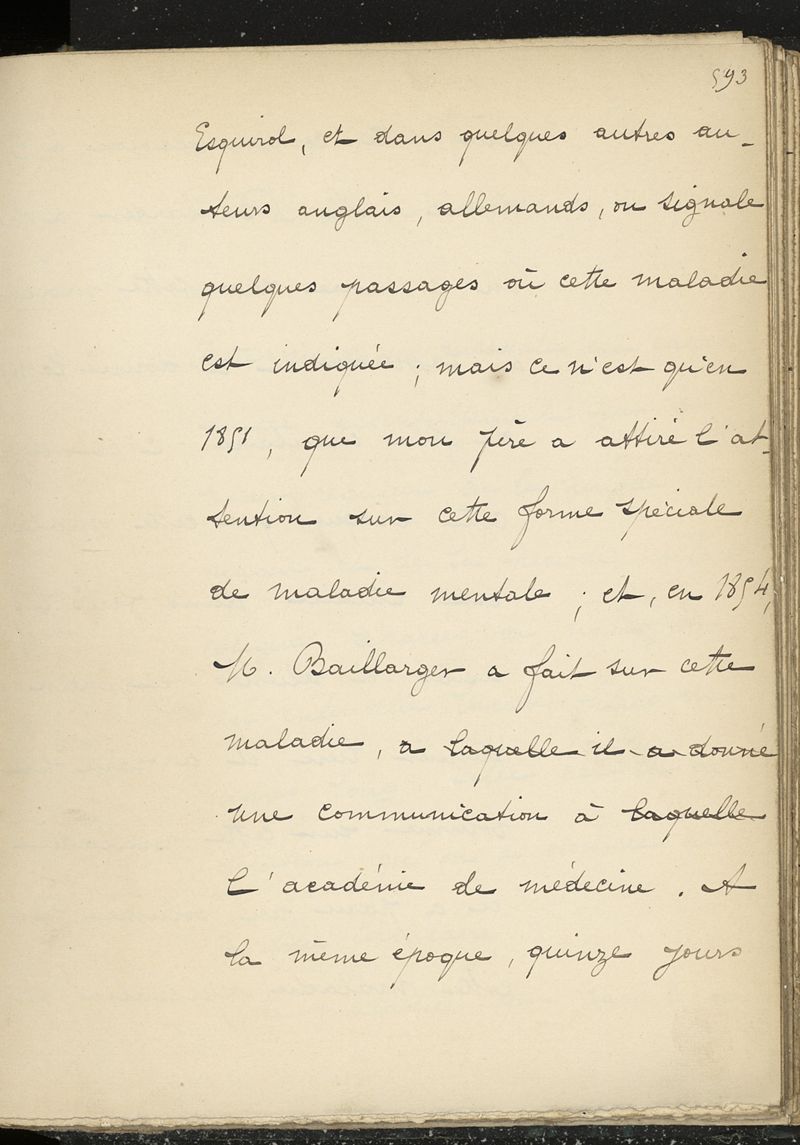 593
Esquirol, et dans quelques autres au-
teurs anglais, allemands, on signale
quelques passages où cette maladie
est indiquée ; mais ce n'est qu'en
1851, que mon père a attiré l'at-
tention sur cette forme spéciale
de maladie mentale ; et, en 1854,
M. Baillarger a fait sur cette
maladie, a laquelle il a donné
une communication à laquelle
l'académie de médecine. A
la même époque, quinze jours